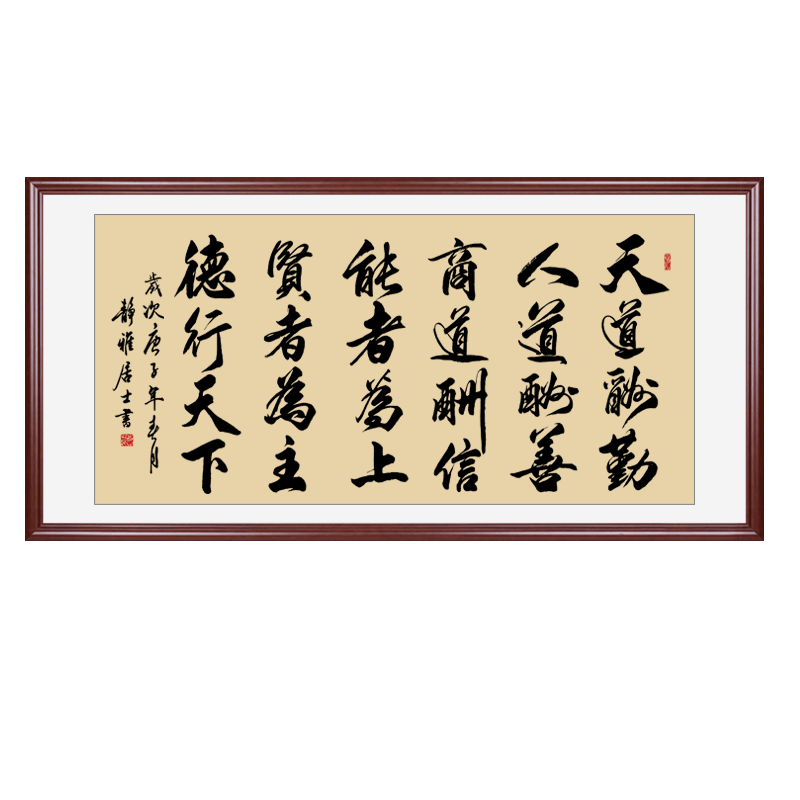 天道酬勤
人道酬善
商道酬信
能者為上
賢者為主
德行天下
歲次庚子年春月
靜雅居士書